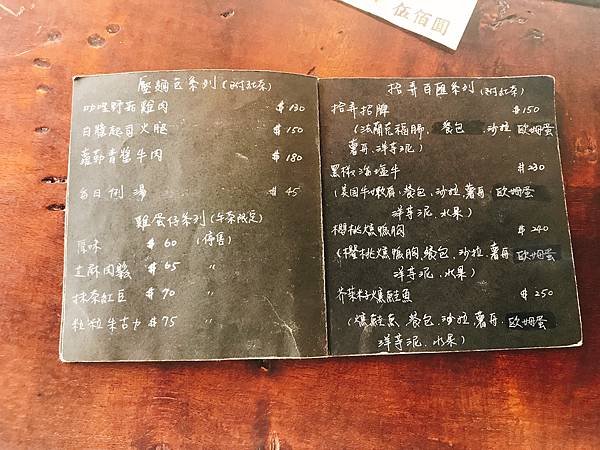 伍佰圓
壓麵包系列(附紅茶)
咖哩野菇雞肉 $130
白醬起司火腿 $150
蘿勒青醬牛肉 $180
每日例湯 $45
雞蛋仔系列(午茶限定)
原味 $60 (停售)
芝麻肉鬆 $65 〃
抹茶紅豆 $70 〃
粒粒朱古力 $75 〃
拾弄百匯系列(附紅茶)
拾弄招牌 $150
(法蘭克福腸、餐包、沙拉 歐姆蛋
薯哥、洋芋泥)
黑椒海鹽牛 $230
(美國牛嫩肩、餐包、沙拉、薯哥 歐姆蛋
洋芋泥、水果)
櫻桃燻鴨胸 $240
(櫻桃燻鴨胸、餐包、沙拉、薯哥 歐姆蛋
洋芋泥、水果)
芥茉籽燻鮭魚 $250
(燻鮭魚、餐包、沙拉、薯哥、歐姆蛋
洋芋泥、水果)